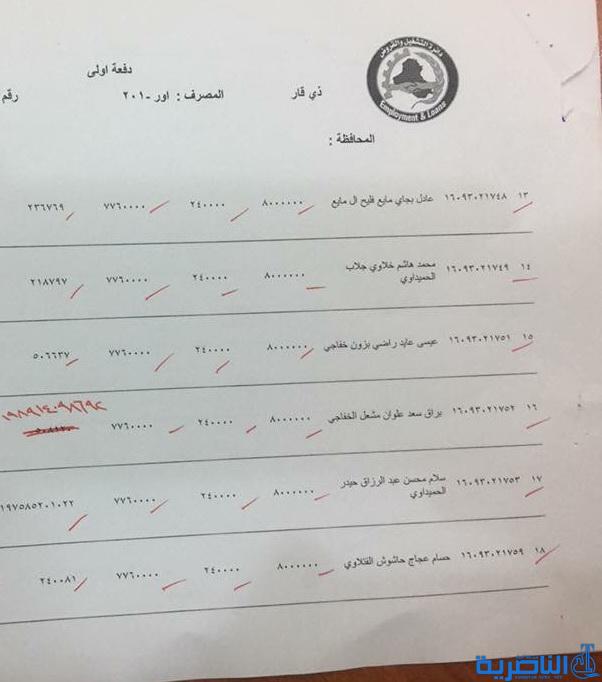 دائرة التشغيل والقروض
Employment & Loans
دفعة اولى
ذي قار
المصرف : اور -٢٠١
رقم
المحافظة :
١٣ ١٦٠٩٣٠٢١٧٤٨ عادل بجاي مايع فليح ال مايع ٨٠٠٠٠٠٠ ٢٤٠٠٠٠ ٧٧٦٠٠٠٠ ٢٣٦٧٦٩
١٤ ١٦٠٩٣٠٢١٧٤٩ محمد هاشم خلاوي جلاب ٨٠٠٠٠٠٠ ٢٤٠٠٠٠ ٧٧٦٠٠٠٠ ٢١٨٧٩٧
الحميداوي
١٥ ١٦٠٩٣٠٢١٧٥١ عيسى عايد راضي بزون خفاجي ٨٠٠٠٠٠٠ ٢٤٠٠٠٠ ٧٧٦٠٠٠٠ ٥٠٦٦٣٧
١٦ ١٦٠٩٣٠٢١٧٥٢ براق سعد علوان مشعل الخفاجي ٨٠٠٠٠٠٠ ٢٤٠٠٠٠ ٧٧٦٠٠٠٠
١٧ ١٦٠٩٣٠٢١٧٥٣ سلام محسن عبد الرزاق حيدر ٨٠٠٠٠٠٠ ٢٤٠٠٠٠ ٧٧٦٠٠٠٠ ١٩٧٥٨٥٢٠١٠٢٢
الحميداوي
١٨ ١٦٠٩٣٠٢١٧٥٩ حسام عجاج حاشوش الفتلاوي ٨٠٠٠٠٠٠ ٢٤٠٠٠٠ ٧٧٦٠٠٠٠ ٢٤٠٠٨١
الناصرية